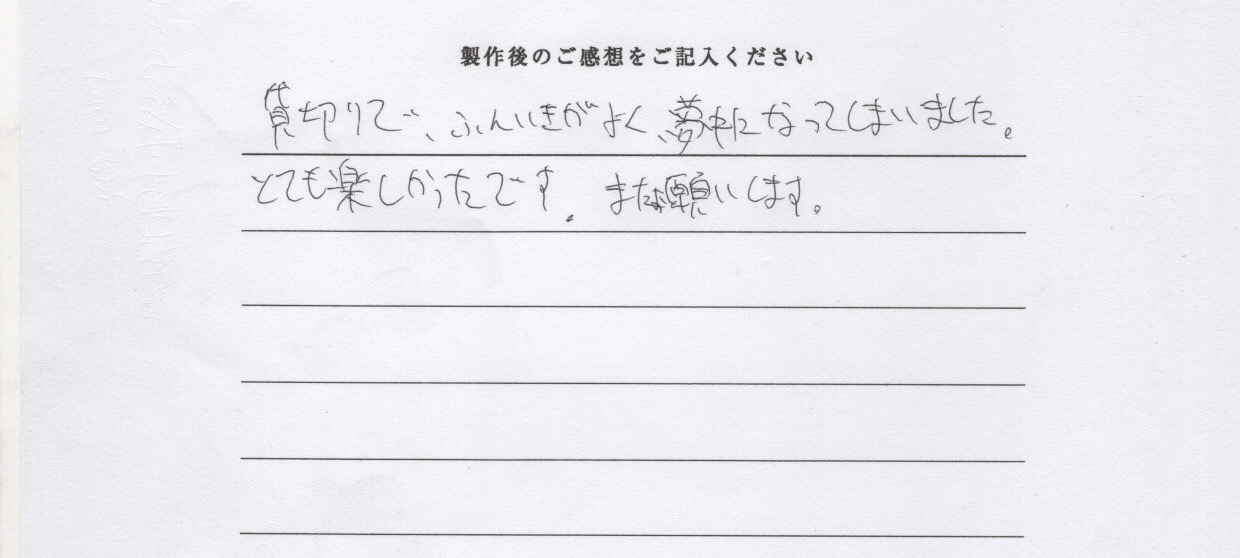 製作後のご感想をご記入ください
貸切りで、ふんいきがよく、夢中になってしまいました。
とても楽しかったです。またお願いします。